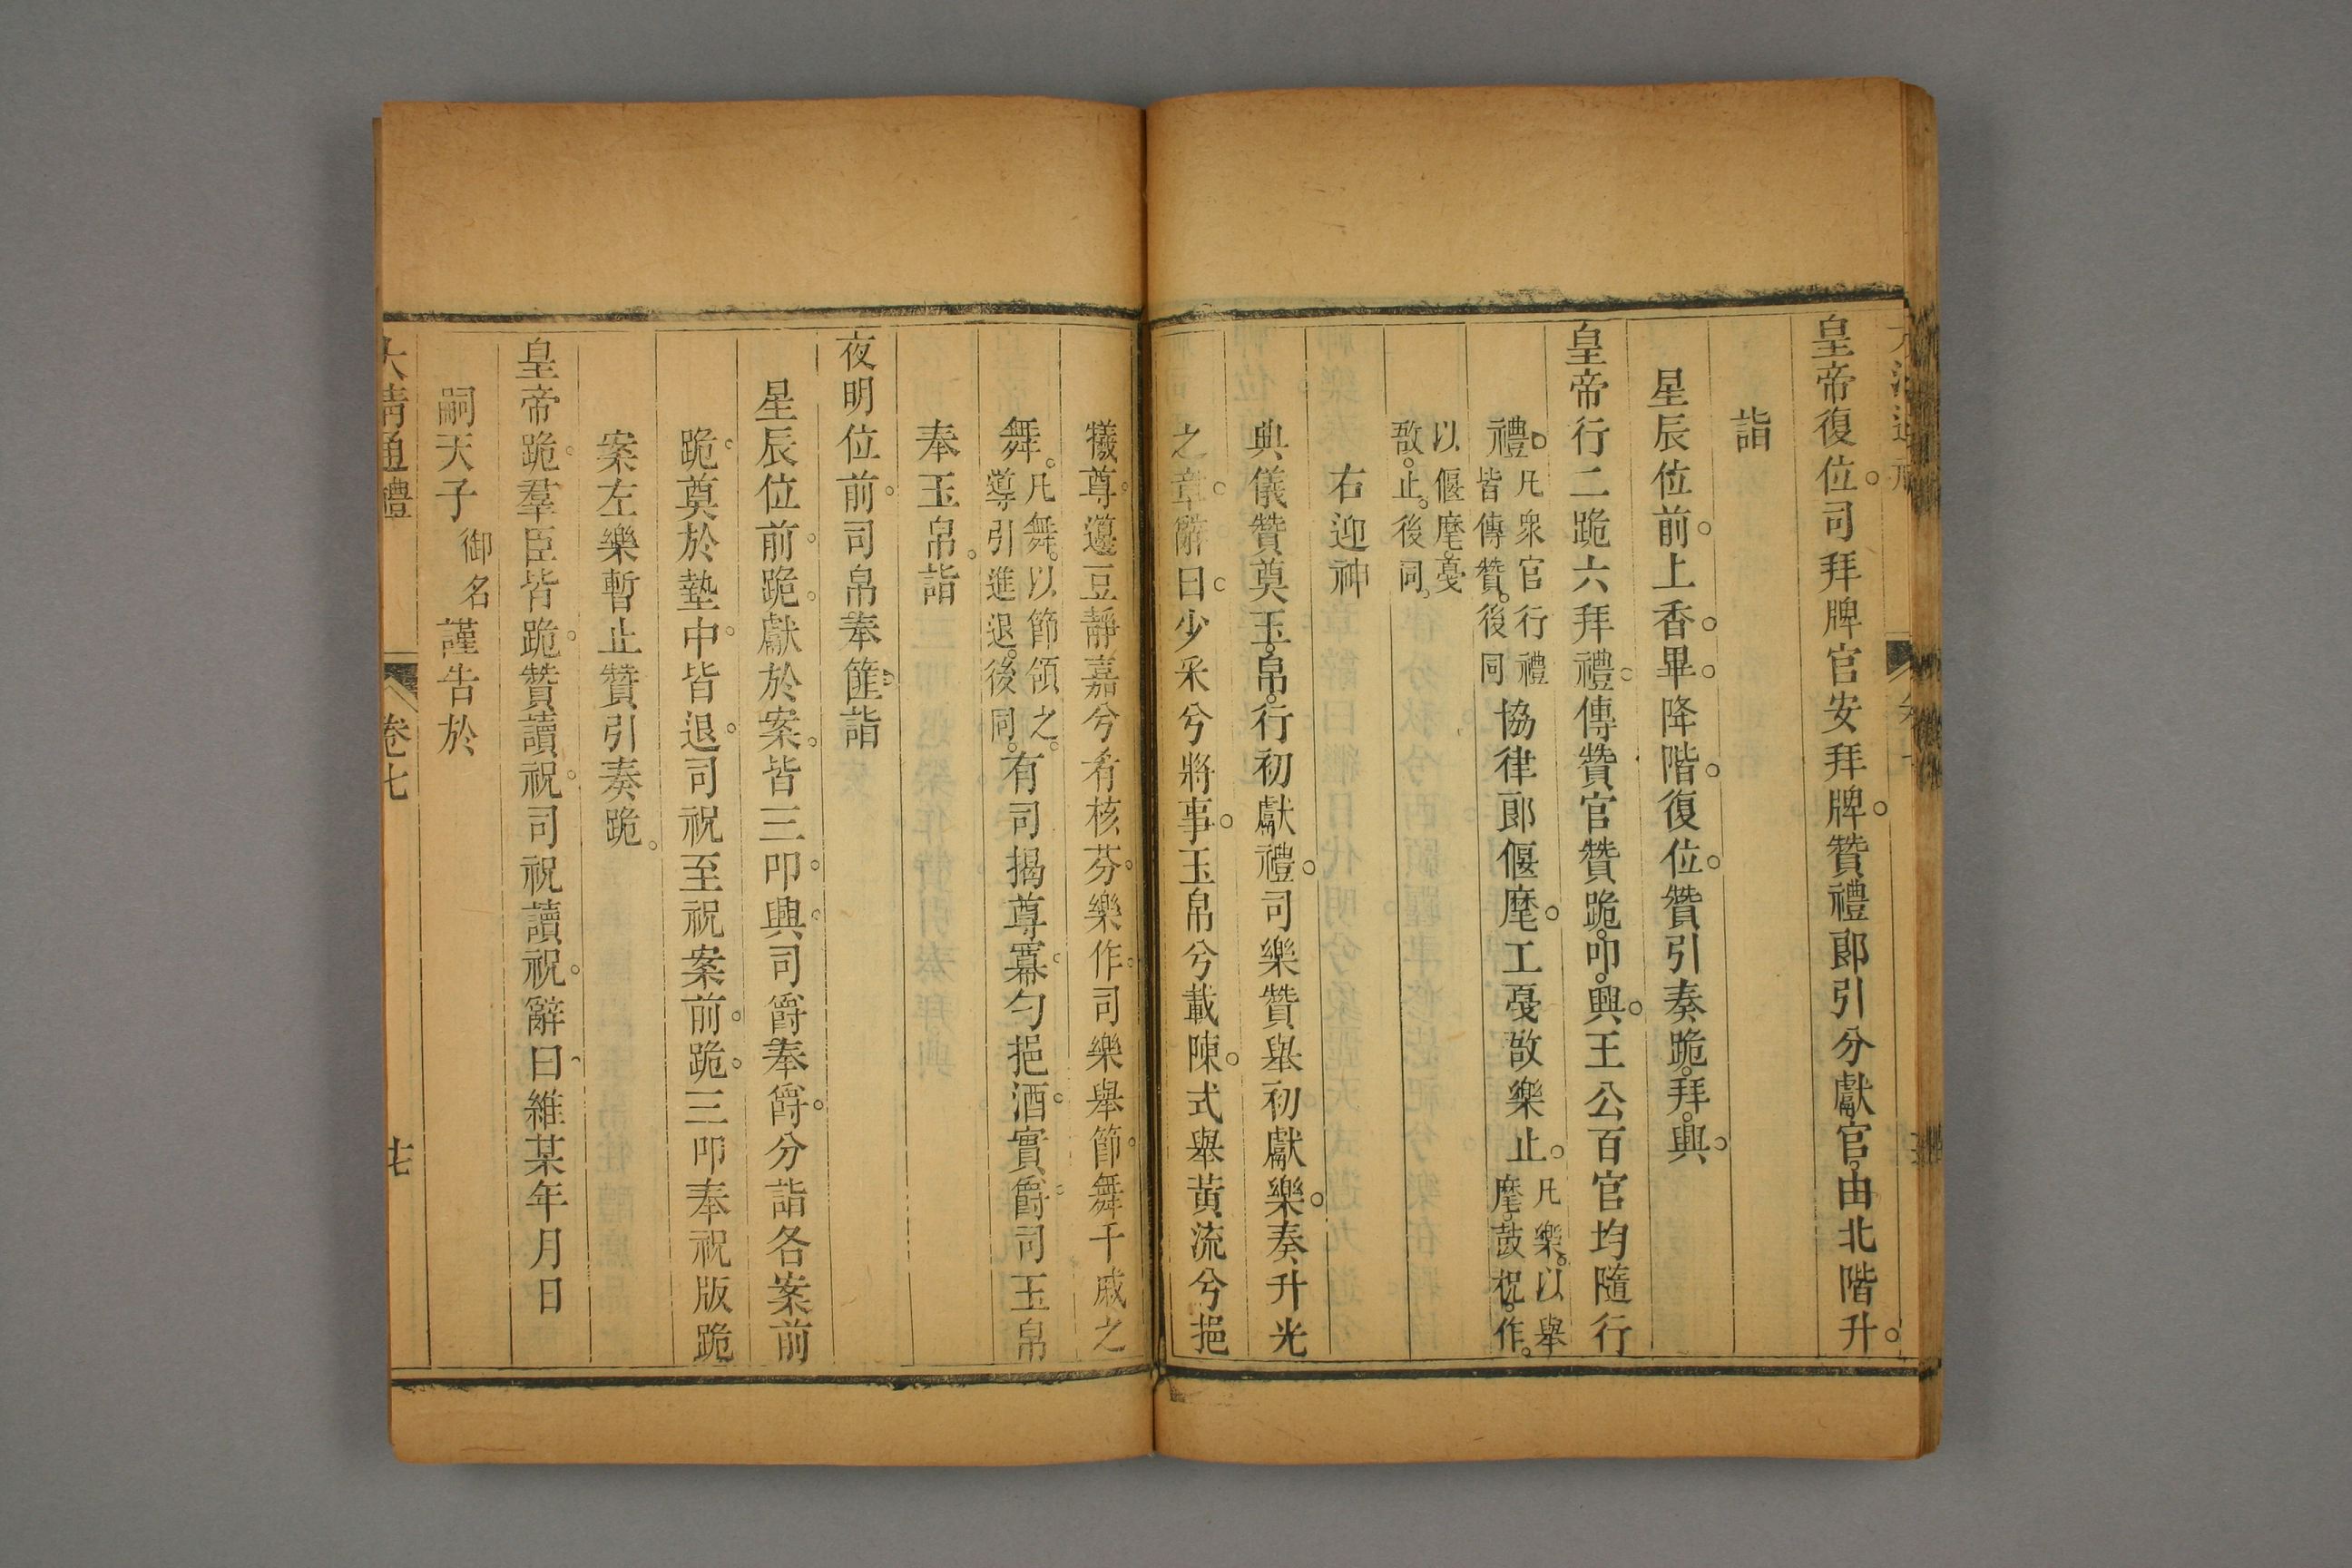 皇帝復位。司拜牌官安拜牌。贊禮郎引分獻官。由北階升。
詣
星辰位前。上香。畢。降階。復位。贊引奏跪。拜。興。
皇帝行二跪六拜禮。傳贊官贊跪。叩。興。王公百官均隨行
禮。凡衆官行禮皆傳贊。後同協律郎偃麾。工戞敔樂止。凡樂。以舉麾。鼓柷。作。
以偃麾。戞敔。止。後同。
右迎神
典儀贊奠玉。帛。行初獻禮。司樂贊舉初獻樂。奏升光
之章。辭曰。少采兮將事。玉帛兮載陳。式舉黃流兮挹
犧尊。籩豆靜嘉兮肴核芬。樂作。司樂舉節。舞干戚之
舞。凡舞。以節領之。導引進退。後同。有司揭尊冪。勺挹酒。實爵。司玉帛
奉玉帛。詣
夜明位前。司帛奉篚詣
星辰位前。跪。獻於案。皆三叩。興。司爵奉爵。分詣各案前
跪。奠於墊中。皆退。司祝至祝案前。跪。三叩奉祝版跪
案左樂暫止贊引奏跪。
皇帝跪。羣臣皆跪。贊讀祝。司祝讀祝。辭曰。維某年月日
嗣天子御名謹告於
大清通禮 卷七 七